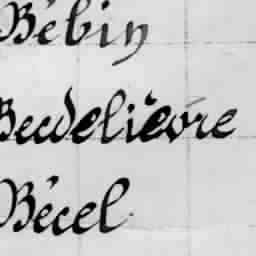 Bébin
Becdelièvre
Bécel